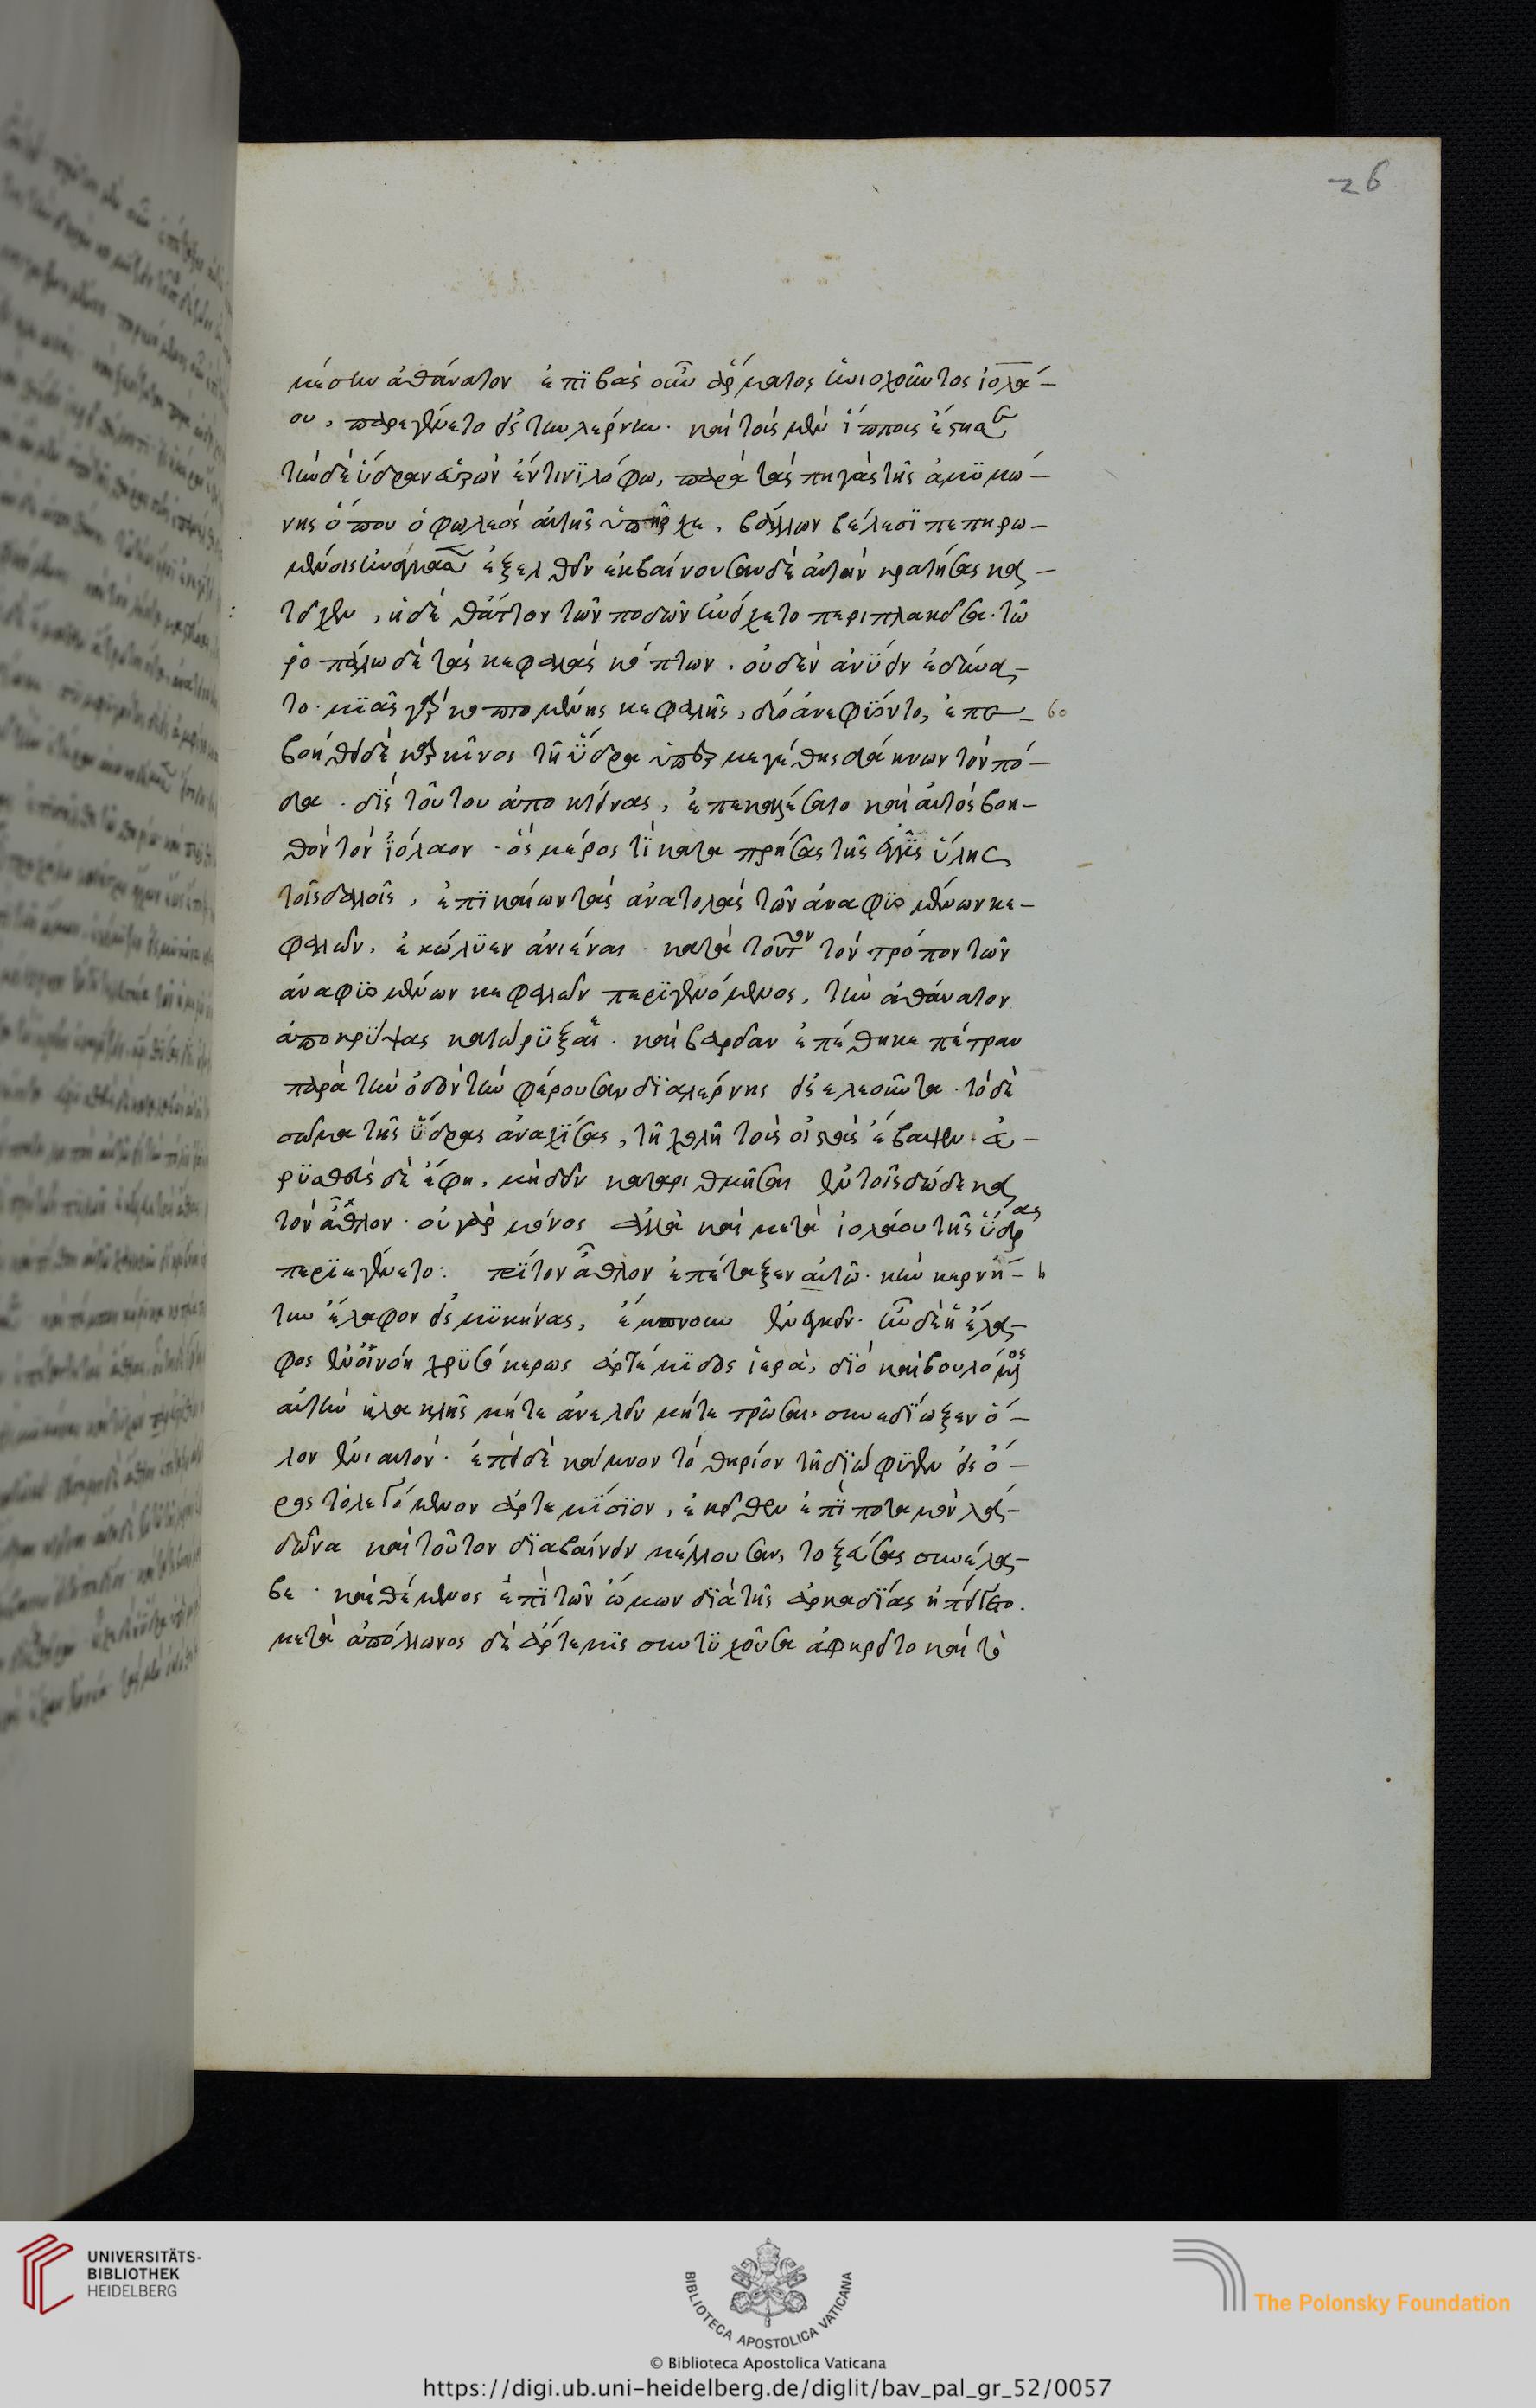 26
μέσην ἀθάνατον ἐπιβὰς οὖν ἅρματος ἡνιοχοῦντος ἰολά-
ου, παρεγένετο εἰς τὴν λέρνην. καὶ τοὺς μὲν ἵππους ἔστησε
τὴν δὲ ὕδραν εὑρὼν ἔν τινι λόφω, παρὰ τὰς πηγὰς τῆς ἀμυμώ-
νης ὅπου ὁ φωλεὸς αὐτῆς ὑπῆρχε, βάλλων βέλεσι πεπυρω-
μένοις ἠνάγκασεν ἐξελθεῖν ἐκβαίνουσαν δὲ αὐτὴν κρατήσας κα-
τεῖχεν, ἡ δὲ θάττον τῶν ποδῶν ἐνείχετο περιπλακεῖσα. τῶ
ροπάλω δὲ τὰς κεφαλὰς κόπτων, οὐδὲν ἀνύειν ἐδύνα-
το. μιᾶς γὰρ κοπτομένης κεφαλῆς, δύο ἀνεφύοντο, ἐπε- 60
βοήθει δὲ καρκῖνος τῆ ὕδρα ὑπερμεγέθης δάκνων τὸν πό-
δα. διὸ τοῦτον ἀποκτείνας, ἐπεκαλέσατο καὶ αὐτὸς βοη-
θὸν τὸν ἰόλαον. ὃς μέρος τὶ καταπρήσας τῆς ἐγγὺς ὕλης
τοῖς δαλοῖς, ἐπικαίων τὰς ἀνατολὰς τῶν ἀναφυομένων κε-
φαλῶν, ἐκώλυεν ἀνιέναι. κατὰ τοῦτον τὸν τρόπον τῶν
ἀναφυομένων κεφαλῶν περιγενόμενος, τὴν ἀθάνατον
ἀποκρύψας κατώρυξε. καὶ βαρεῖαν ἐπέθηκε πέτραν
παρὰ τὴν ὁδὸν τὴν φέρουσαν διὰ λέρνης εἰς ελεοῦντα. τὸ δὲ
σῶμα τῆς ὕδρας ἀνασχίσας, τῆ χολῆ τοὺς οἰστοὺς ἔβαψεν. εὐ-
ρυσθεὺς δὲ ἔφη, μὴ δεῖν καταριθμῆσαι ἐν τοῖς δώδεκα
τὸν ἆθλον. οὐ γὰρ μόνος ἀλλὰ καὶ μετὰ ἰολάου τῆς ὕδρας
περιεγένετο: τρίτον ἆθλον ἐπέταξεν αὐτῶ. τὴν κερνῆ-
την ἔλαφον εἰς μυκήνας, ἔμπνουν ἐνεγκεῖν. ἦν δὲ ἡ ἔλα-
φος ἐν οἰνόη χρυσόκερως ἀρτέμιδος ἱερά, διὸ καὶ βουλόμενος
αὐτὴν ἡρακλῆς μήτε ἀνελεῖν μήτε τρῶσαι, συνεδίωξεν ὅ-
λον ἐνιαυτόν. ἐπεὶ δὲ κάμνον τὸ θηρίον τῆ διώξει φυγεῖν εἰς ὄ-
ρος τὸ λεγόμενον ἀρτεμίσιον, ἐκεῖθεν ἐπὶ ποταμὸν λά-
δωνα καὶ τοῦτον διαβαίνειν μέλλουσαν, τοξεύσας συνέλα-
βε. καὶ θέμενος ἐπὶ τῶν ὤμων διὰ τῆς ἀρκαδίας ἠπείγετο.
μετὰ ἀπόλλωνος δὲ ἄρτεμις συντυχοῦσα ἀφηρεῖτο καὶ τὸ
UNIVERSITÄTS-
BIBLIOTHEK
HEIDELBERG
BIBLIOTECA APOSTOLICA VATICANA
The Polonsky Foundation
© Biblioteca Apostolica Vaticana
https://digi.ub.uni-heidelberg.de/diglit/bav_pal_gr_52/0057